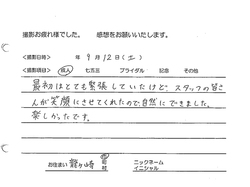 撮影お疲れ様でした。 感想をお願いいたします。
<撮影日時> 年 9月12日(土)
<撮影項目> 成人 七五三 ブライダル 記念 その他
最初はとても緊張していたけど、スタッフの皆さ
んが笑顔にさせてくれたので自然にできました。
楽しかったです。
お住まい 龍ヶ崎 市 ニックネーム
イニシャル